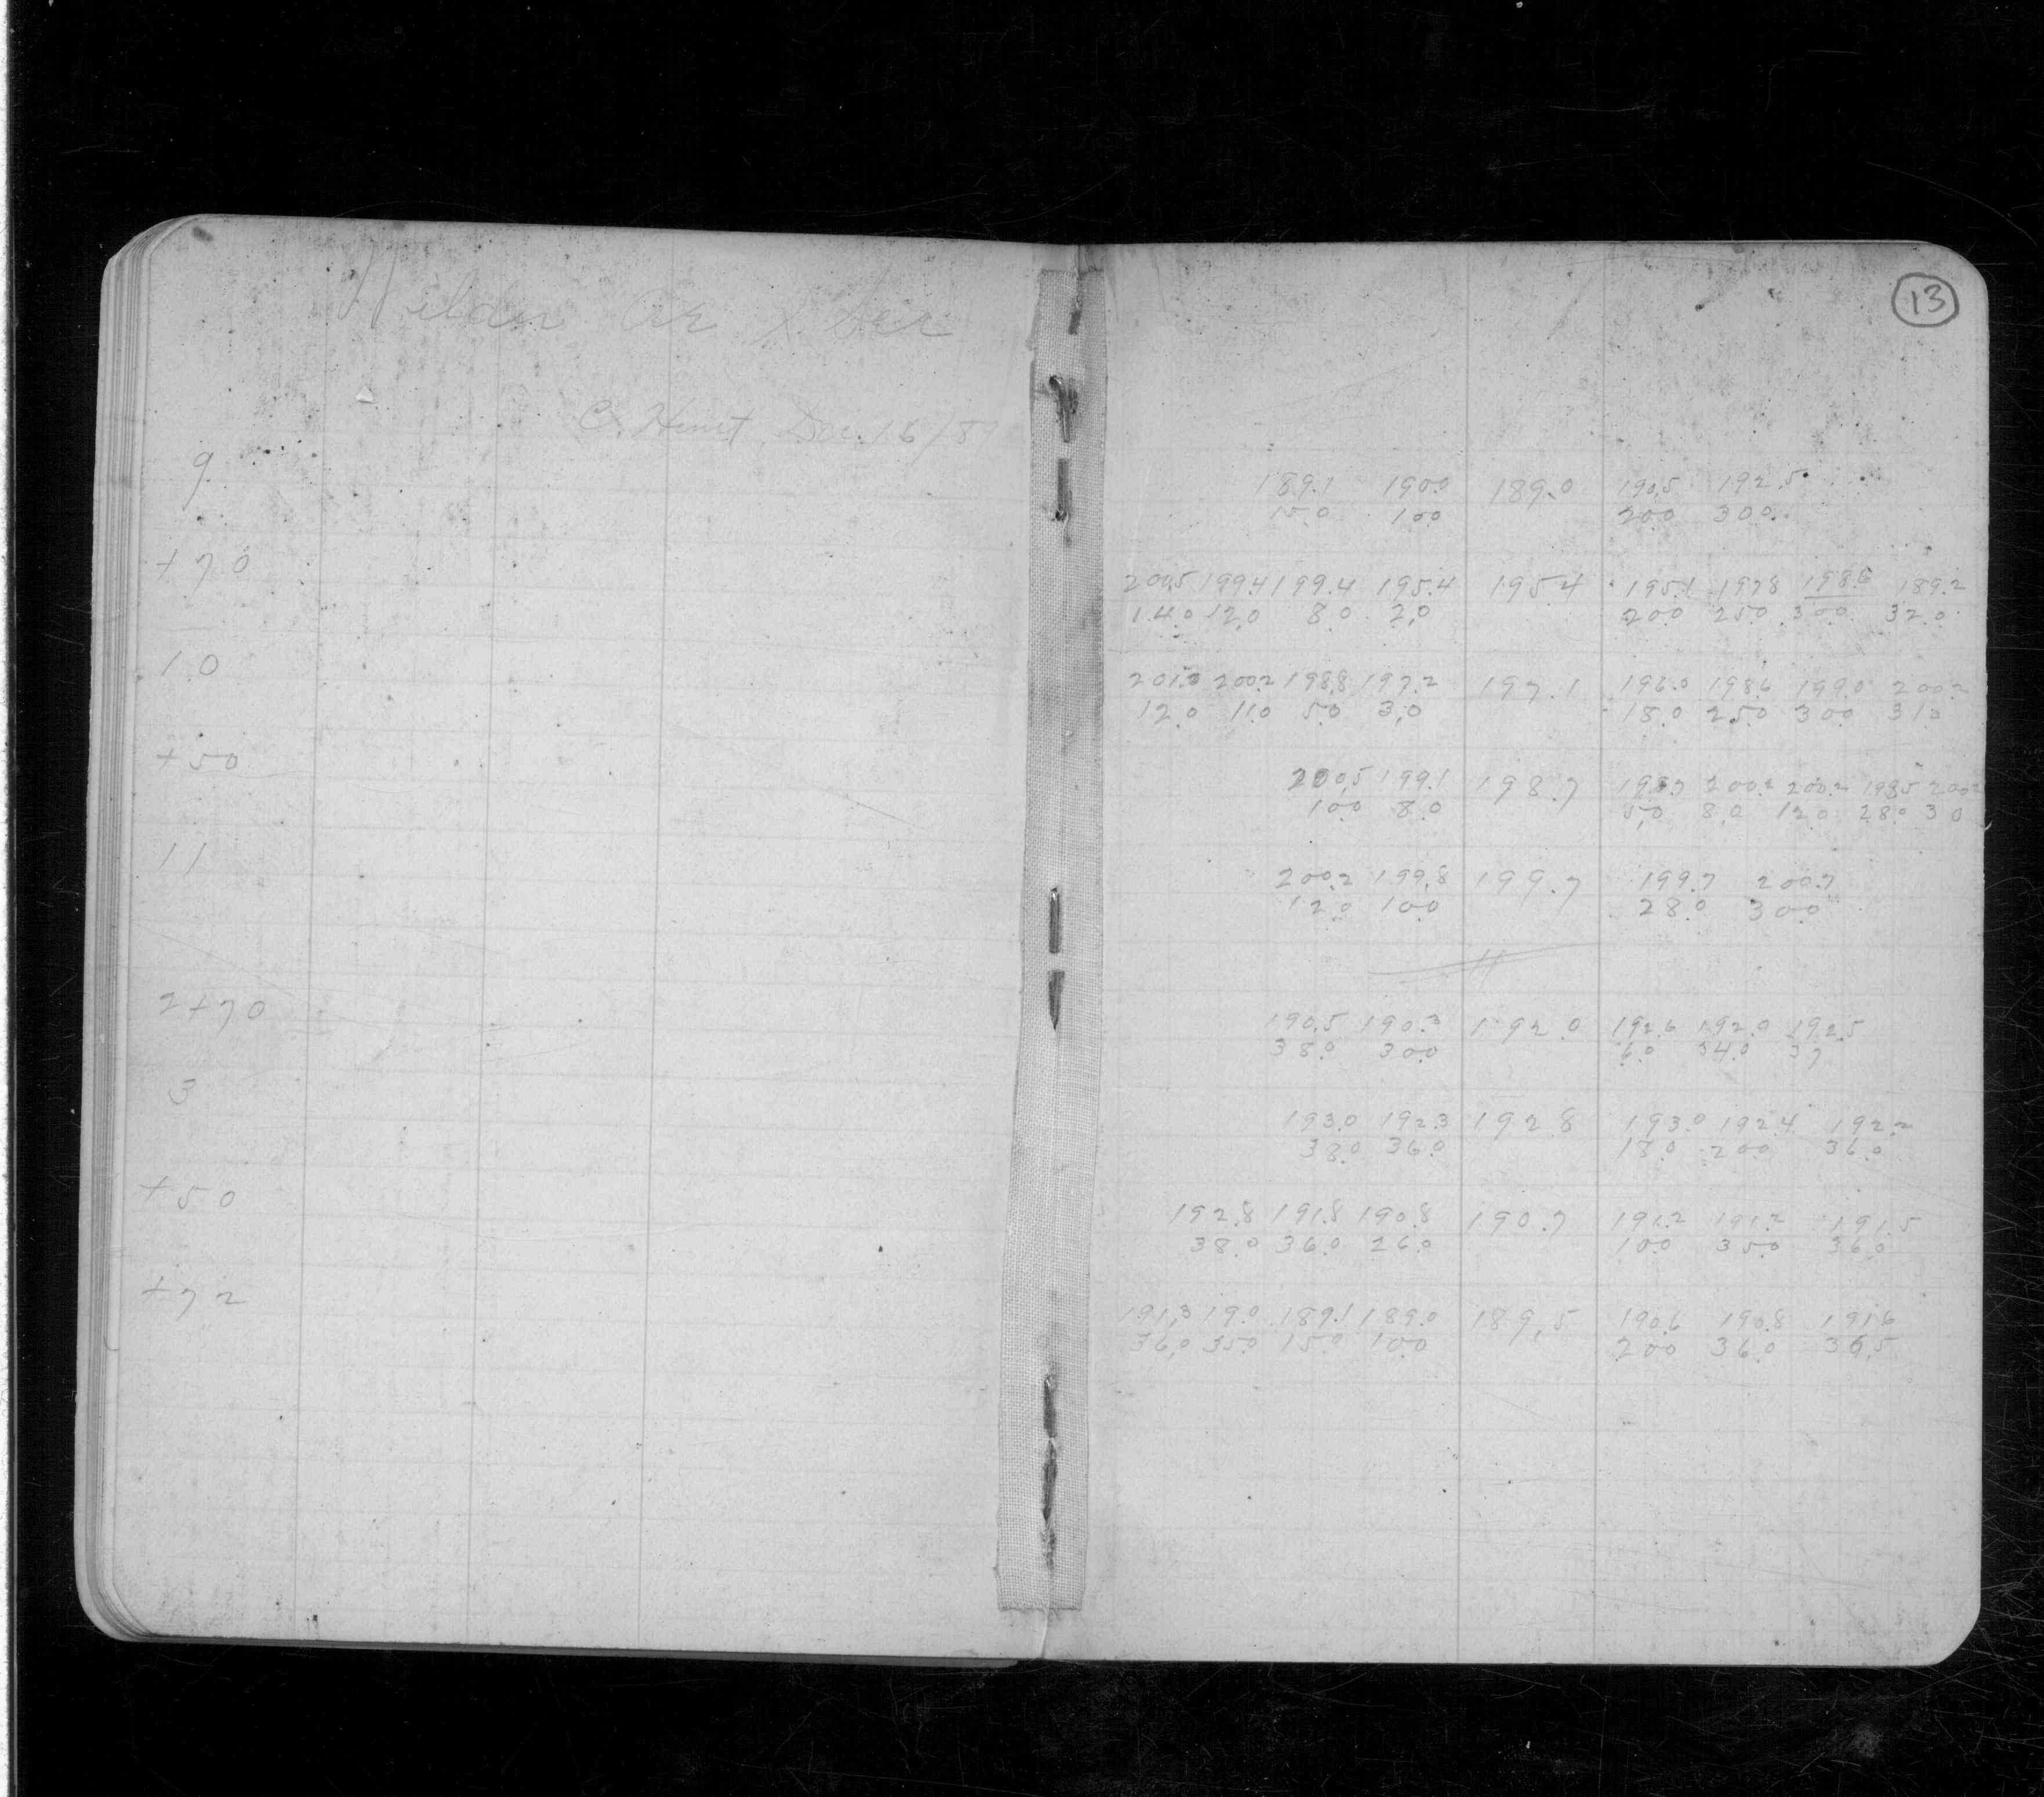 13
Wilder Ave X Sec
C. Hunt Dec. 16/8
9
189.1 190.0 189.0 190.5 192.5
15.0 10.0 20.0 30.0
+70
200.5 199.4 199.4 195.4 195.4 195.1 197.8 198.6 189.2
14.0 12.0 8.0 2.0 20.0 25.0 30.0 32.0
10
200.2 198.8 197.2 197.1 196.0 198.6 199.0 200.2
12.0 11.0 5.0 3.0 18.0 25.0 30.0 31.0
+50
200.5 199.1 198.7 198.7 200.2 200.2 198.5 200.2
10.0 8.0 5.0 8.0 12.0 28.0 30
11
200.2 199.8 199.7 199.7 200.7
12.0 10.0 28.0 30.0
2+70
190.5 190.3 192.0 192.6 192.0 192.5
38.0 30.0 6.0 34.0 37
3
193.0 192.3 192.8 193.0 192.4 192.2
38.0 36.0 18.0 20.0 36.0
+50
192.8 191.8 190.8 190.7 191.2 191.2 191.5
38.0 36.0 26.0 10.0 35.0 36.0
+72
191.3 19.0 189.1 189.0 189.5 190.6 190.8 191.6
36.0 35.0 15.0 10.0 20.0 36.0 36.5